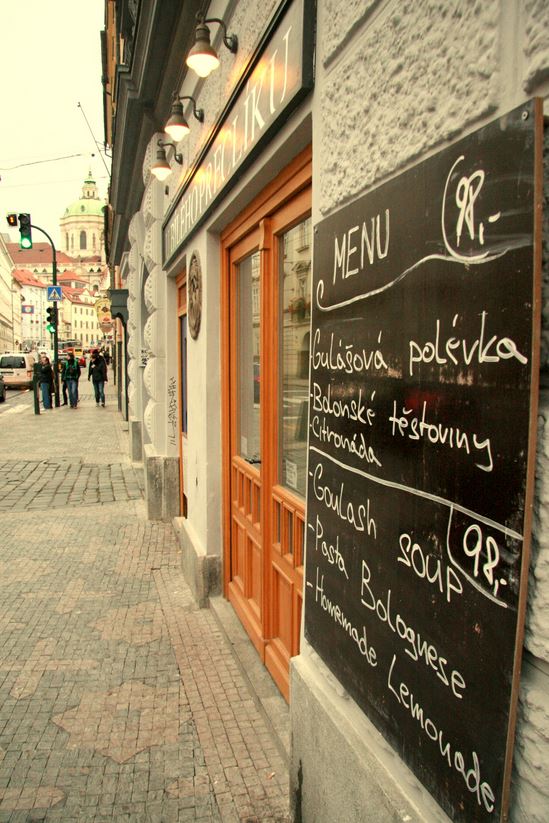 MENU 98,-
Gulášová polévka
- Bolonské těstoviny
- Citronáda
- Goulash soup 98,-
- Pasta Bolognese
- Homemade Lemonade